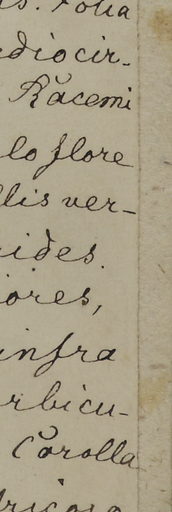 s. Folia
diocir-
Racemi
lo flore
llis ver-
ides.
iores,
infra
rbicu-
Corolla